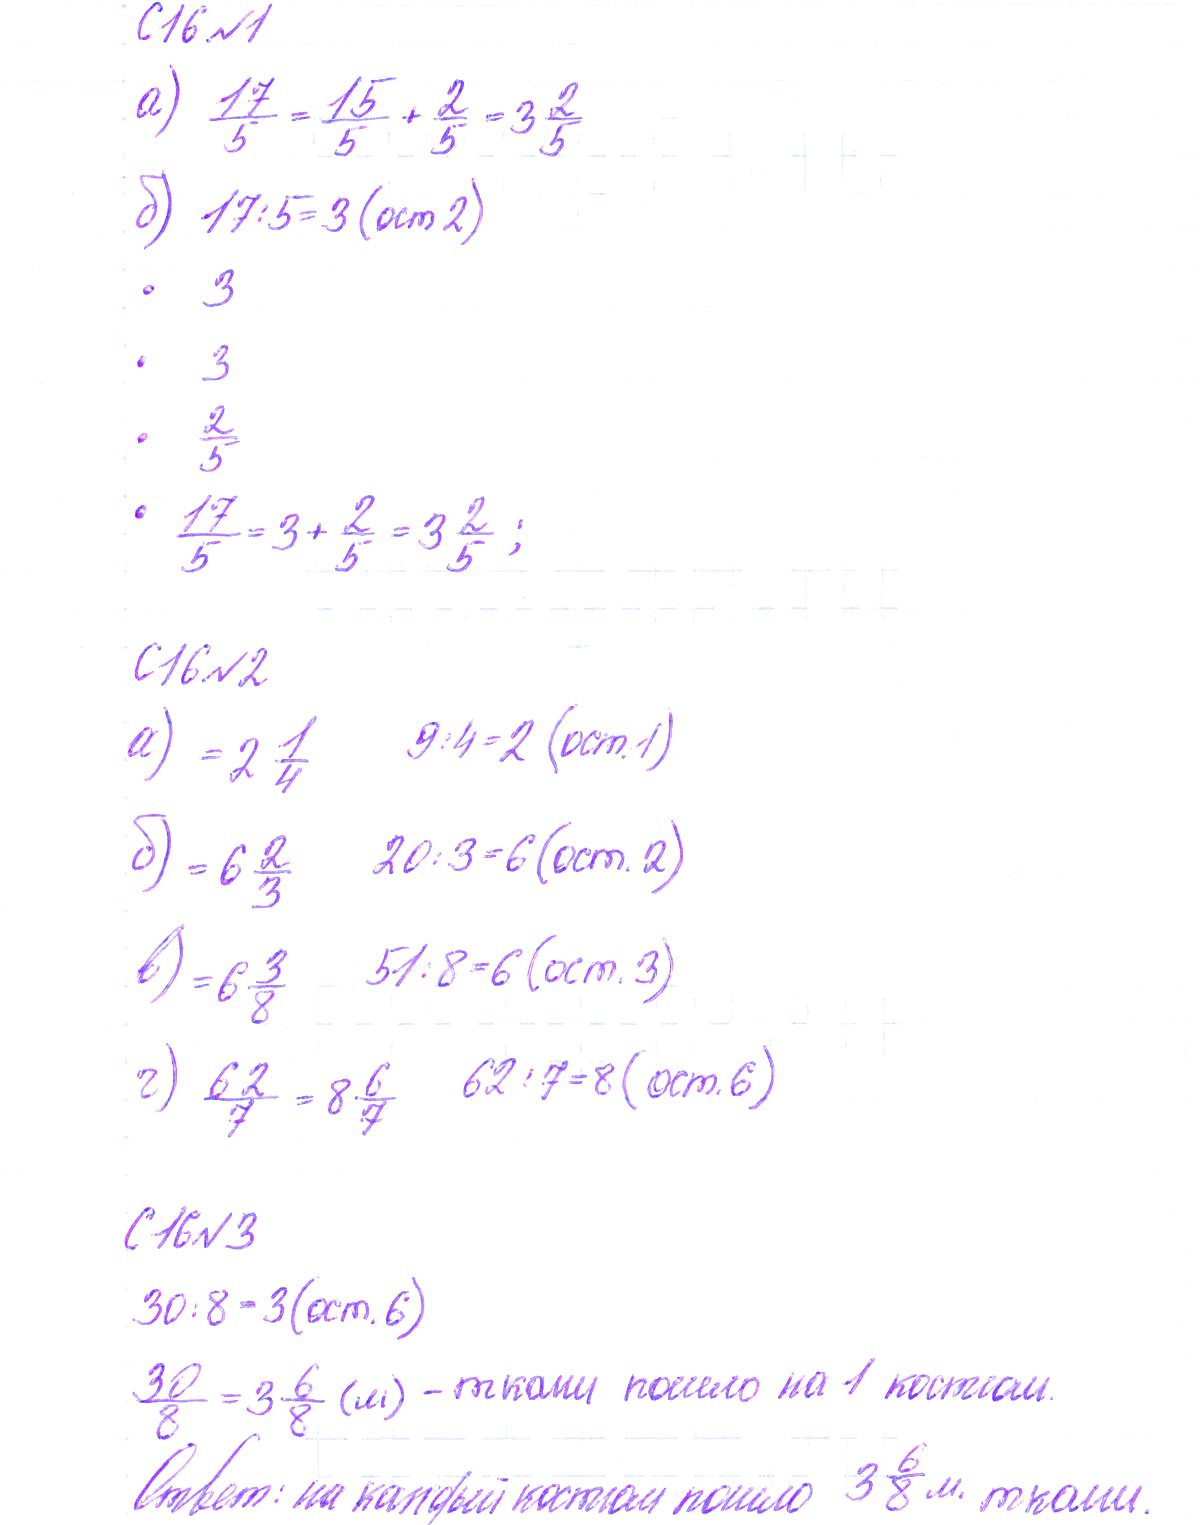 С16 №1
а) 17/5 = 15/5 + 2/5 = 3 2/5
б) 17:5=3 (ост 2)
• 3
• 3
• 2/5
• 17/5 = 3 + 2/5 = 3 2/5 ;
С16 №2
а) = 2 1/4 9:4=2 (ост. 1)
б) = 6 2/3 20:3=6 (ост. 2)
в) = 6 3/8 51:8=6 (ост. 3)
г) 62/7 = 8 6/7 62:7=8 (ост. 6)
С16 №3
30:8=3 (ост. 6)
30/8 = 3 6/8 (м) – ткани пошло на 1 костюм.
Ответ: на каждый костюм пошло 3 6/8 м. ткани.